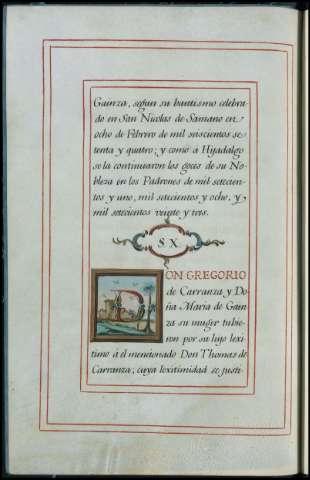 Gainza, segun su bautismo celebra-
do en San Nicolas de Samano en
ocho de Febrero de mil seiscientos se-
tenta y quatro; y como à Hijodalgo
se la continuaron los goces de su No-
bleza en los Padrones de mil setecien-
tos y uno, mil setecientos y ocho, y
mil setecientos veinte y tres.
S. X.
DON GREGORIO
de Carranza y Do-
ña Maria de Gain
za su muger tubie-
ron por su hijo lexi-
timo à el mencionado Don Thomas de
Carranza; cuya lexitimidad se justi-